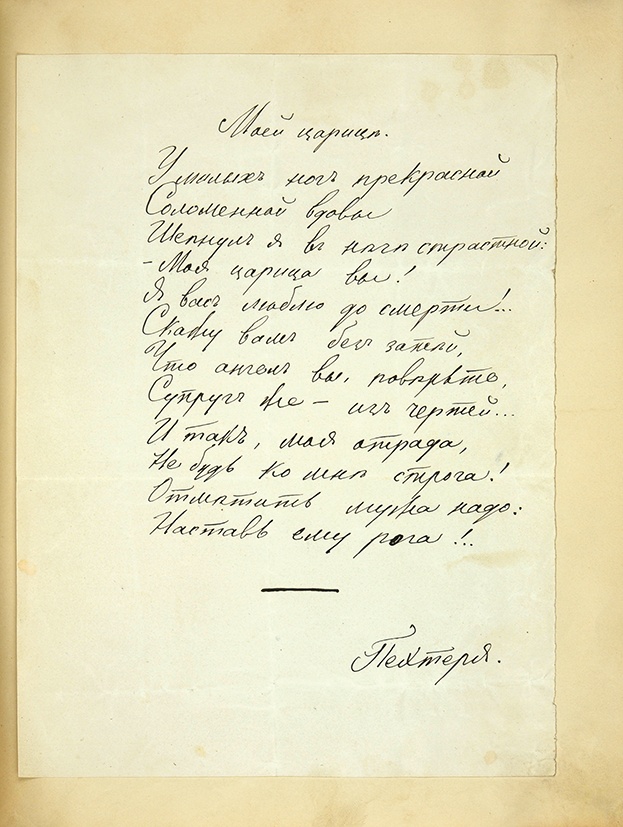 Моей царицѣ.
У милыхъ ногъ прекрасной
Соломенной вдовы
Шепнулъ я въ нѣгѣ страстной:
– Моя царица вы!
Я васъ люблю до смерти!..
Скажу вамъ безъ затѣй,
Что ангелъ вы, повѣрьте,
Супругъ же – изъ чертей...
И такъ, моя отрада,
Не будь ко мнѣ строга!
Отмстить мужа надо:
Наставь ему рога!..
Пехтеря.